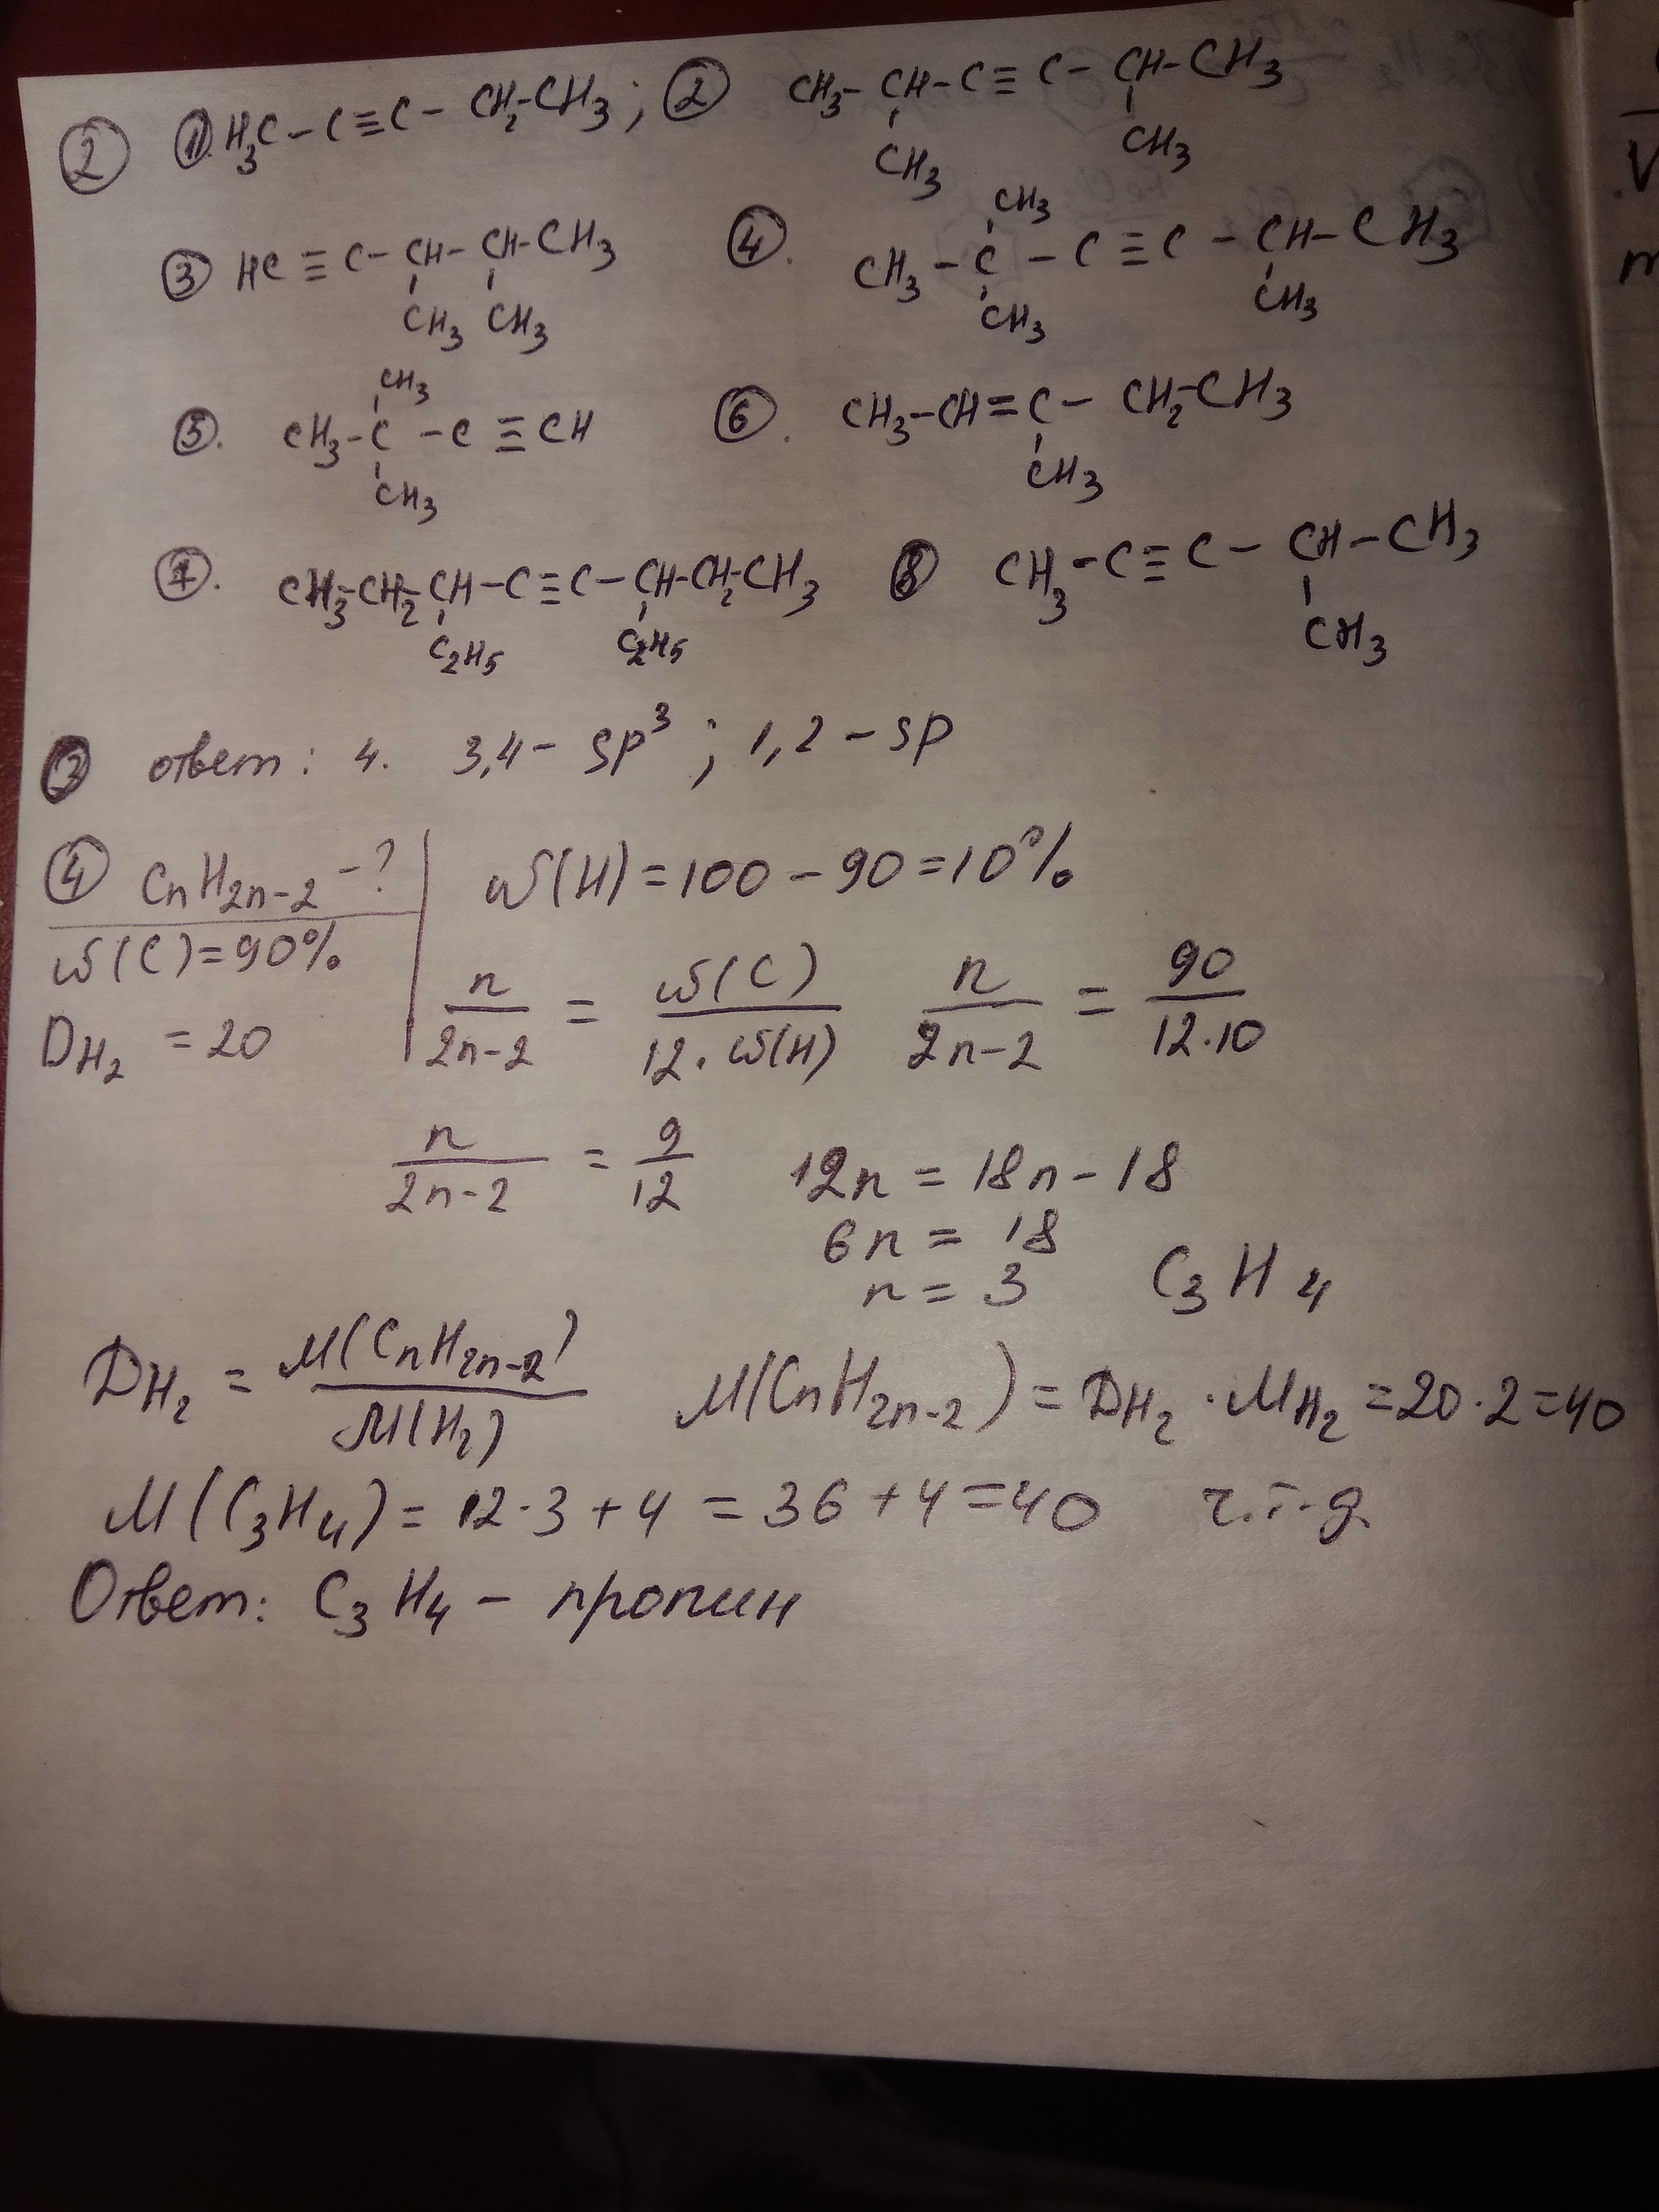 ② ①. H₃C – C ≡ C – CH₂–CH₃ ; ② CH₃– CH – C ≡ C – CH–CH₃
CH₃ CH₃
③ HC ≡ C – CH – CH–CH₃ ④. CH₃ – C – C ≡ C – CH – CH₃
CH₃ CH₃ CH₃ CH₃ CH₃
⑤. CH₃ – C – C ≡ CH ⑥. CH₃–CH = C – CH₂–CH₃
CH₃ CH₃ CH₃
⑦. CH₃–CH₂–CH – C ≡ C – CH–CH₂–CH₃ ⑧ CH₃ – C ≡ C – CH – CH₃
C₂H₅ C₂H₅ CH₃
③ ответ: 4. 3,4 – sp³ ; 1,2 – sp
④ CnH2n-2 – ? ω(H) = 100 – 90 = 10%
ω(C) = 90%
DH₂ = 20 n/(2n-2) = ω(C)/(12·ω(H)) n/(2n-2) = 90/(12·10)
n/(2n-2) = 9/12 12n = 18n – 18
6n = 18
n = 3 C₃H₄
DH₂ = M(CnH2n-2)/M(H₂) M(CnH2n-2) = DH₂ · MH₂ = 20·2 = 40
M(C₃H₄) = 12·3 + 4 = 36 + 4 = 40 ч.т.д.
Ответ: C₃H₄ – пропин